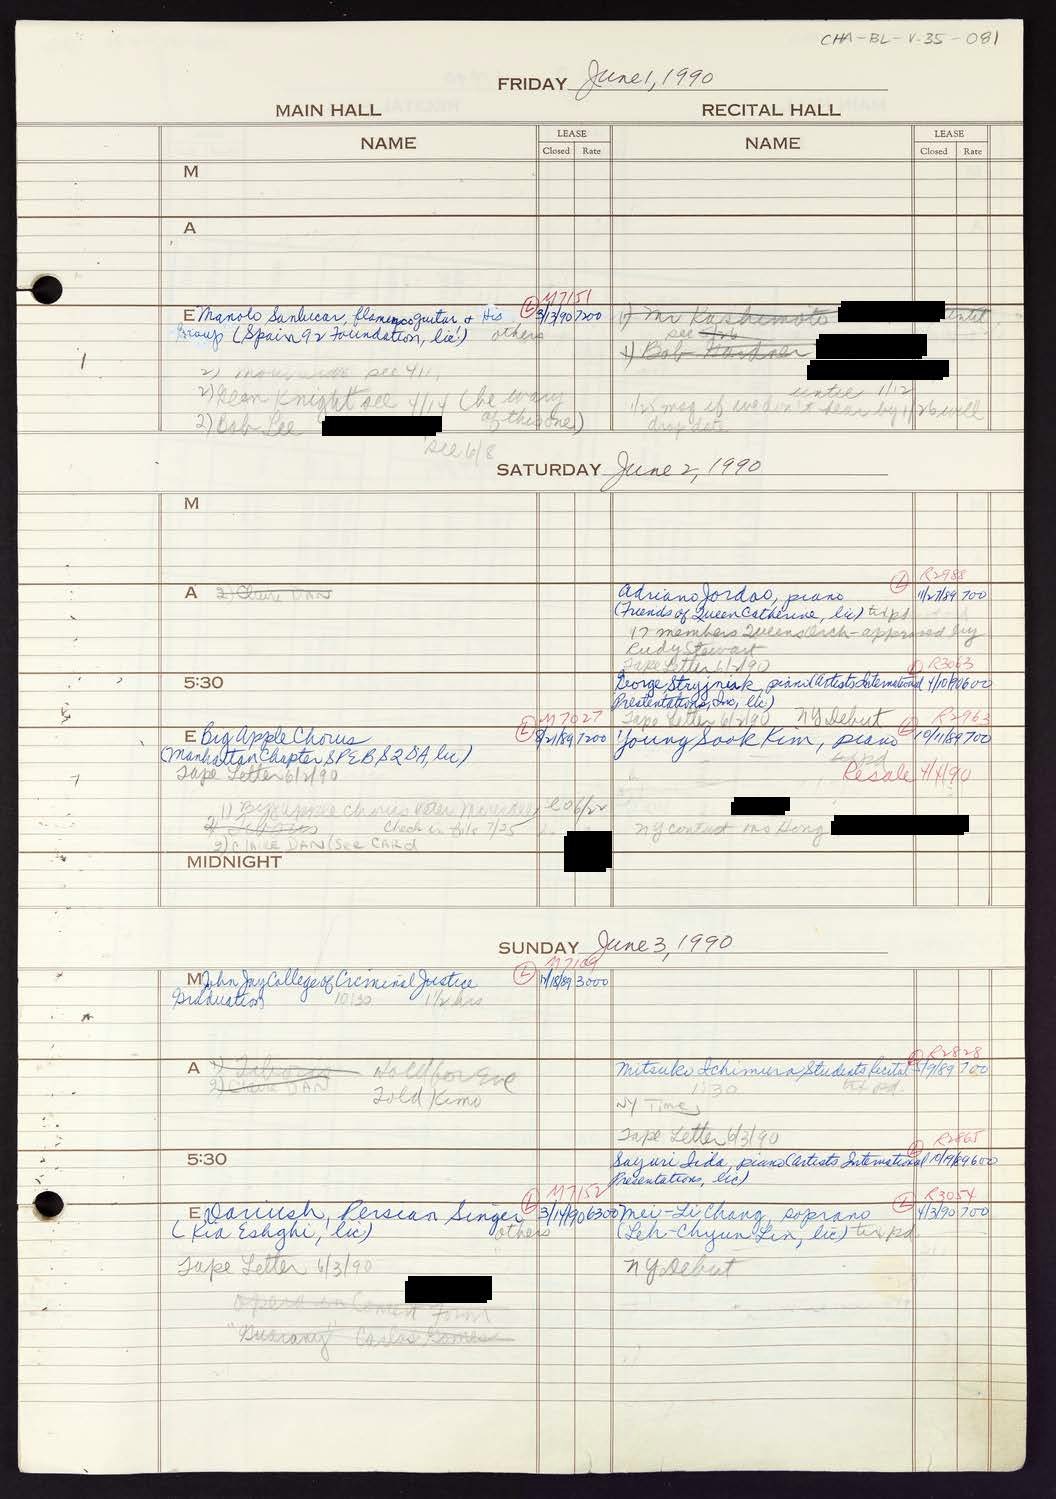 CHA-BL-V-35-081
FRIDAY June 1, 1990
MAIN HALL
RECITAL HALL
NAME
LEASE
Closed Rate
NAME
LEASE
Closed Rate
M
A
M7151
E Manolo Sanlucar, flamenco guitar & His L 3/13/90 7200
Group (Spain 92 Foundation, lic!) others
2) see 4/1
2) Glenn Knight see 4/14 (be wary
of this one)
2) Bob Lee
see 6/8
1) Mr Kashimoto
see 7/26
1) Bob Gardner
until 1/12
1/25 msg if we don't hear by 1/26 will
drop date
SATURDAY June 2, 1990
M
A 2) Claire DAN
L R2988
Adriano Jordao, piano 11/27/89 700
(Friends of Queen Catherine, lic) tix pd
17 members Queens Orch - approved by
Rudy Stewart
Tape Letter 6/2/90
R3063
5:30
George Stryjniak, piano (Artists International 4/10/90 600
Presentations, Inc, lic)
Tape Letter 6/2/90 NY Debut
M7027
E Big Apple Chorus L 8/21/89 7200
(Manhattan Chapter SPEBSQSA, lic)
Tape Letter 6/2/90
1) Big Apple Chorus Peter
Check in file 7/25
3) CLAIRE DAN (See CARD
R2963
Young Sook Kim, piano 10/11/89 700
tix pd
Resale 4/4/90
NY contact Ms Hong
MIDNIGHT
SUNDAY June 3, 1990
M7109
M John Jay College of Criminal Justice L 11/18/89 3000
Graduation 10:30 1 1/2 hrs
A Hold for Eve
2) Claire DAN
Told Kimo
R2828
Mitsuko Ichimura Students Recital 5/9/89 700
1:30 tix pd.
NY Times
Tape Letter 6/3/90
R2865
5:30
Sayuri Iida, piano (Artists International 600
Presentations, lic)
M7152
E Dariush, Persian Singer L 3/14/90 6300
(Kia Eshghi, lic) others
Tape Letter 6/3/90
Opera in Concert Form
"Guarany" Carlos Gomes
L R3054
Mei-Li Chang, soprano 4/3/90 700
(Leh-Chyun Lin, lic) tix pd
NY Debut